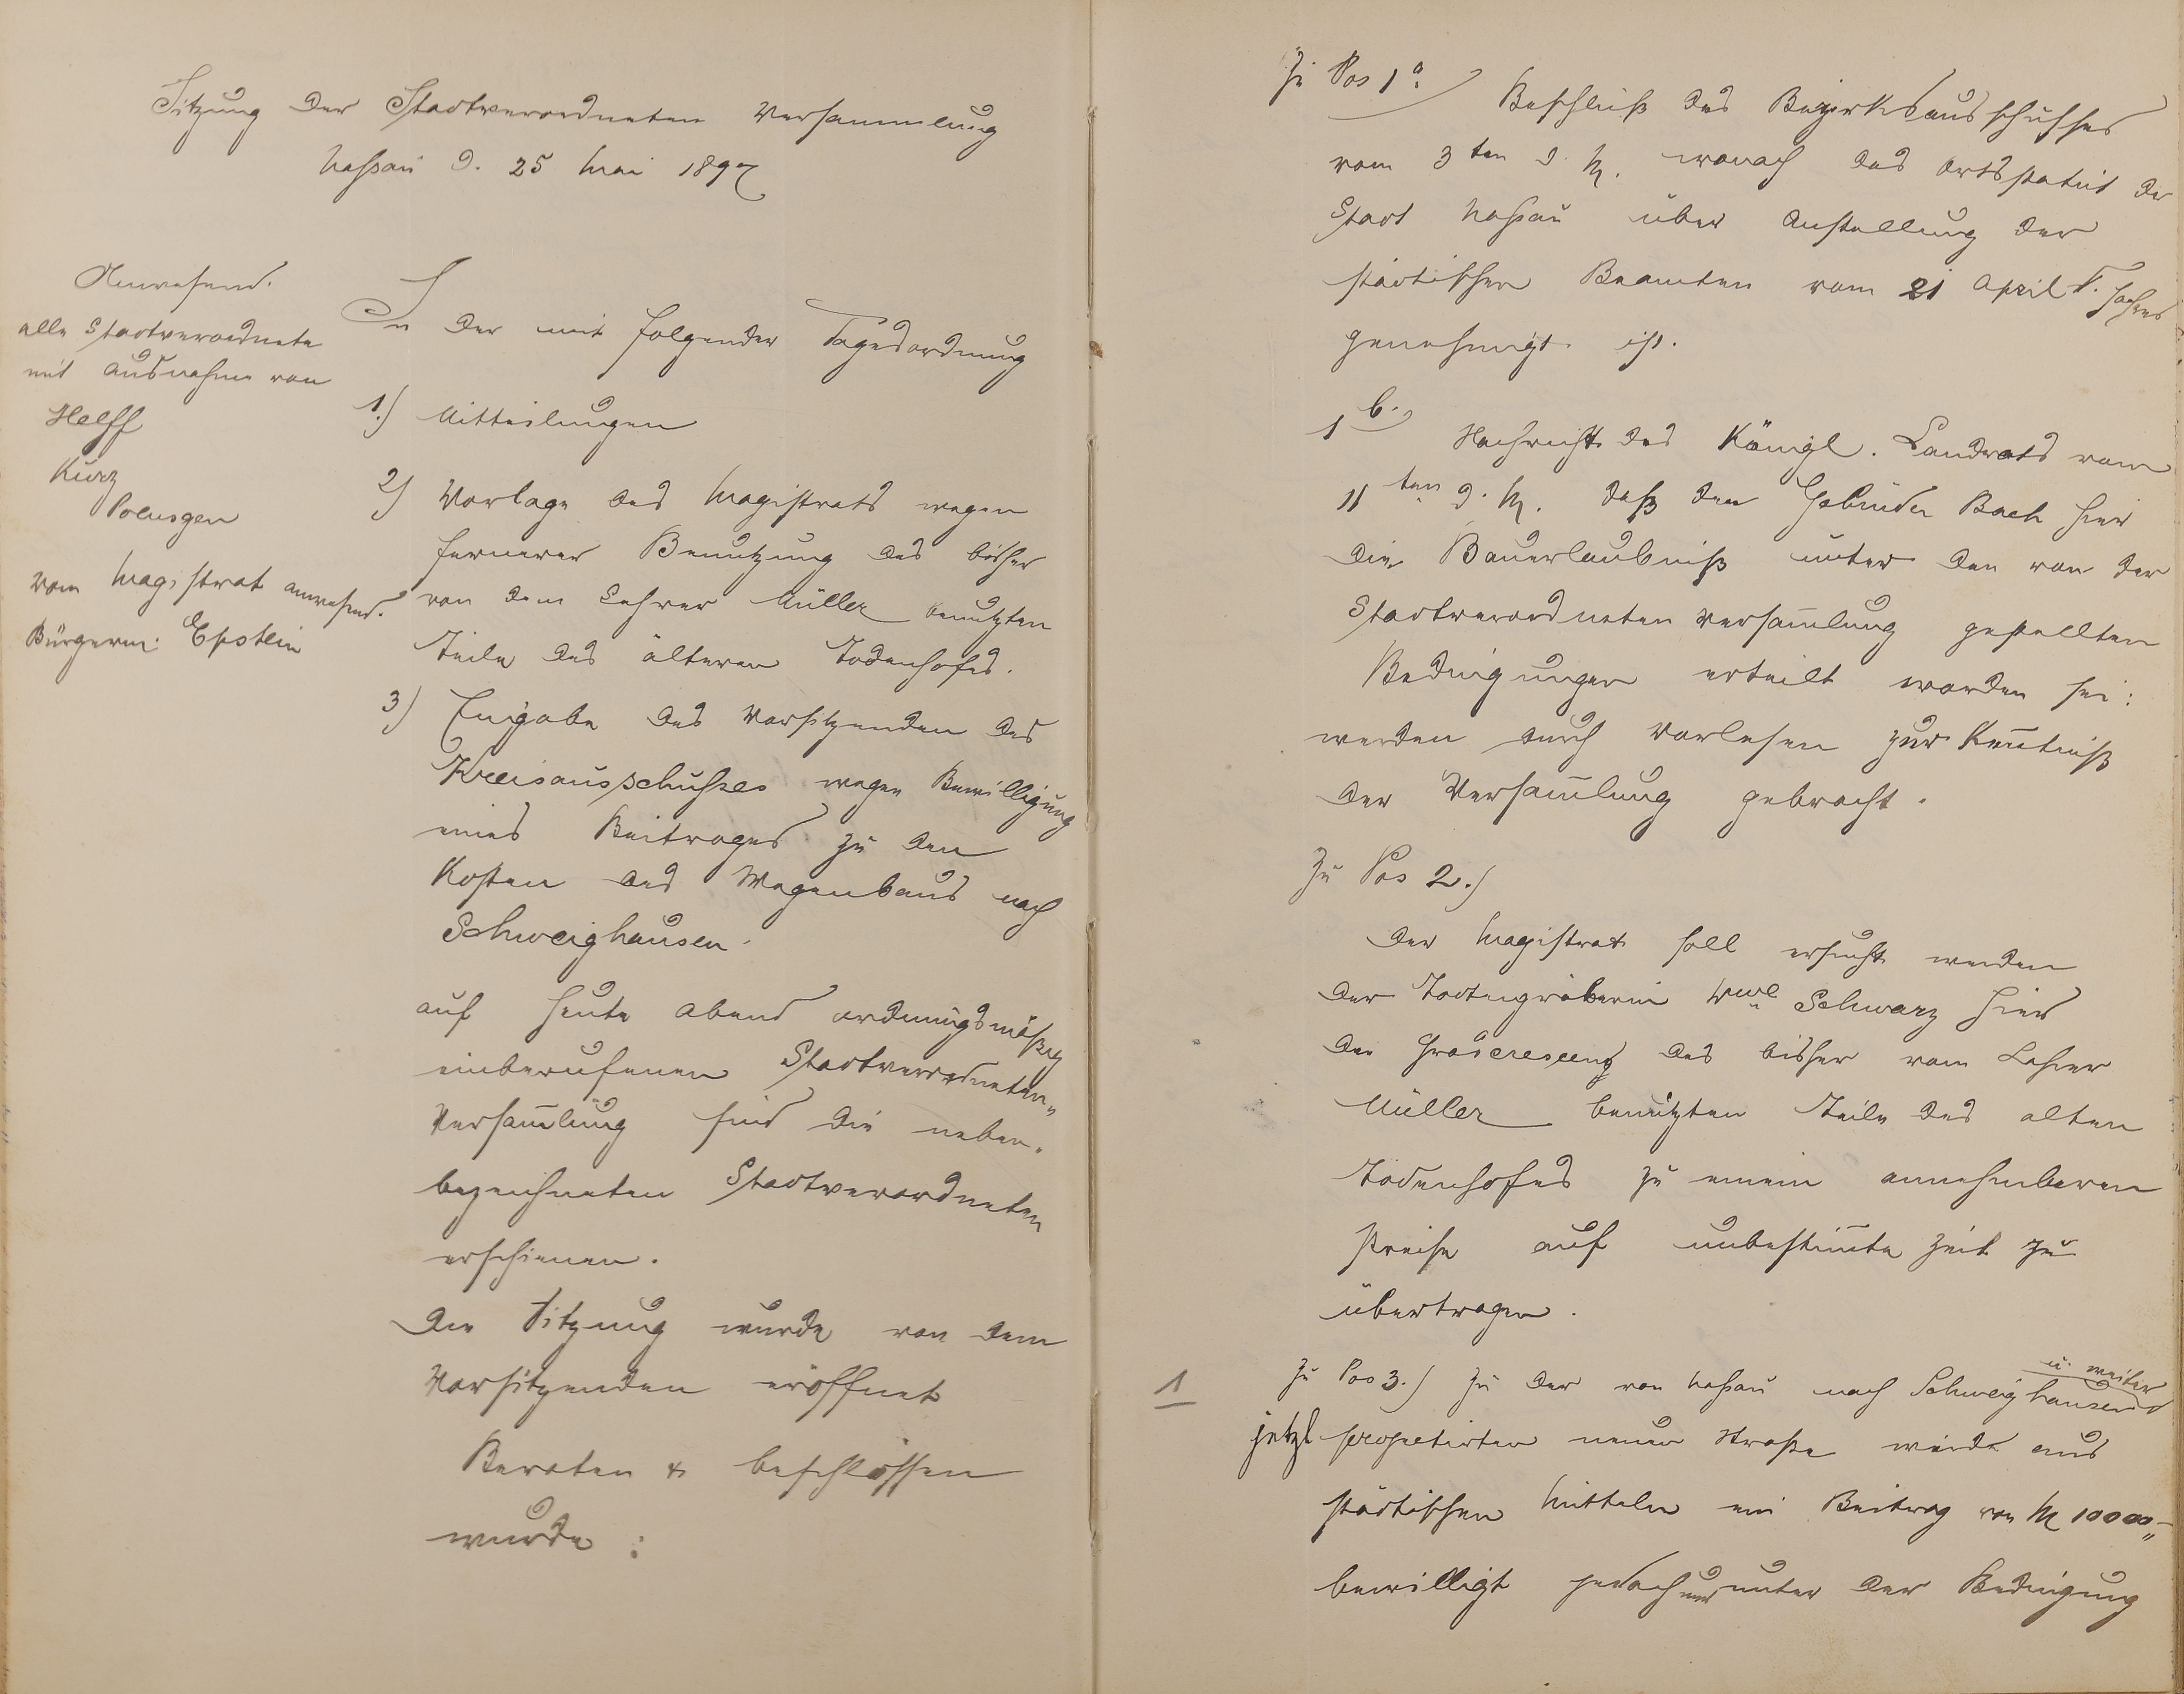 Sitzung der Stadtverordneten Versammlung
Nassau d. 25 Mai 1897
Anwesend.
alle Stadtverordnete
mit Ausnahme von
Helff
Kurz
Poensgen
vom Magistrat anwesend.
Bürgerm: Epstein
In der mit folgender Tagesordnung
1.) Mitteilungen
2) Vorlage des Magistrats wegen
fernerer Benutzung des bisher
von dem Lehrer Müller benutzten
Teile des älteren Todenhofes.
3) Eingabe des Vorsitzenden des
Kreisausschußes wegen Bewilligung
eines Beitrages zu den
Kosten des Wegenbaus nach
Schweighausen.
auf heute Abend ordnungsmäßig
einberufenen Stadtverordneten-
Versam̅lung sind die neben-
bezeichneten Stadtverordneten
erschienen.
Die Sitzung wurde von dem
Vorsitzenden eröffnet
Beraten & beschlossen
wurde:
Zu Pos 1a. Beschluß des Bezirksausschusses
vom 3ten d. M. wonach das Ortsstatut der
Stadt Nassau über Anstellung der
städtischen Beamten vom 21 April d. Jahres
genehmigt ist.
1b. Nachricht des Königl. Landrats vom
11ten d. M. daß den Gebrüder Bach hier
die Bauerlaubniß unter den von der
Stadtverordneten Versam̅lung gestellten
Bedingungen erteilt worden sei:
werden durch Vorlesen zur Ken̅tniß
der Versam̅lung gebracht.
Zu Pos 2.)
Der Magistrat soll ersucht werden
der Todtengräberin Wwe Schwarz hier
die Grascrescenz des bisher vom Lehrer
Müller benützten Teile des alten
Todenhofes zu einem annehmbaren
Preise auf unbestim̅te Zeit zu
übertragen.
1
Zu Pos 3.) Zu der von Nassau nach Schweighausen u. weiter
jetzt projectirten neuen Straße wurde aus
städtischen Mitteln ein Beitrag von M 10000,-
bewilligt jedoch nur unter der Bedingung